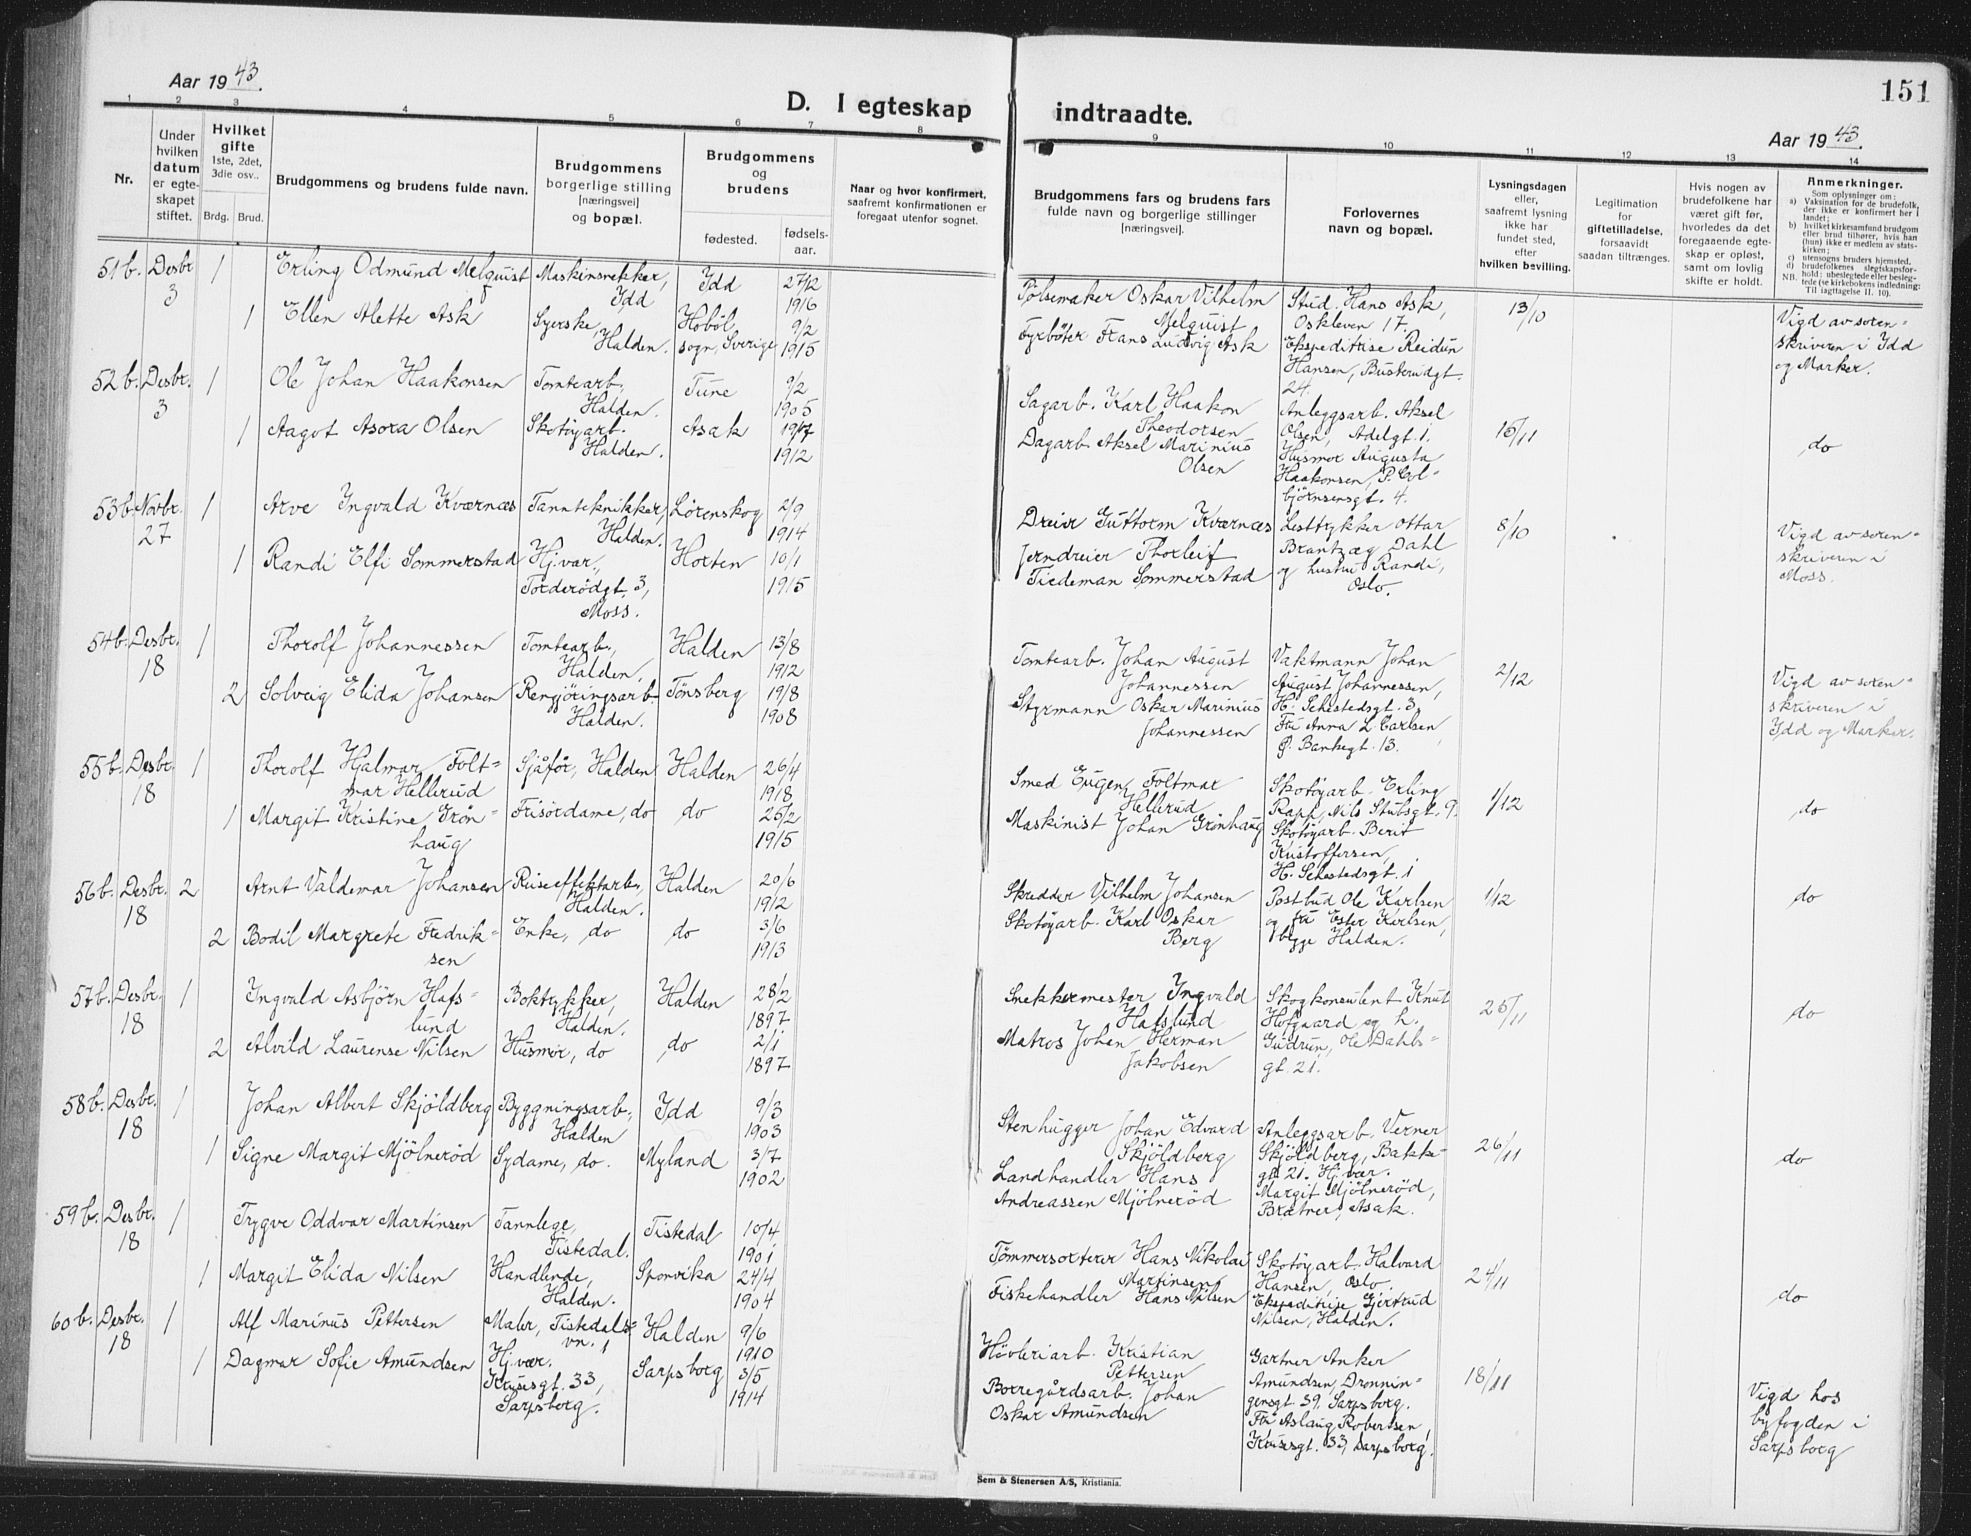 Aar 1943.
151
D. I egteskap indtraadte.
Aar 1943.
1 2 3 4 5 6 7 8 9 10 11 12 13 14
Nr.
Under
hvilken
datum
er egte-
skapet
stiftet.
Hvilket
gifte
1ste, 2det,
3die osv..
Brdg. Brud.
Brudgommens og brudens fulde navn.
Brudgommens
borgerlige stilling
[næringsvei]
og bopæl.
Brudgommens
og
brudens
fødested.
fødsels-
aar.
Naar og hvor konfirmert,
saafremt konfirmationen er
foregaat utenfor sognet.
Brudgommens fars og brudens fars
fulde navn og borgerlige stillinger
[næringsvei].
Forlovernes
navn og bopæl.
Lysningsdagen
eller,
saafremt lysning
ikke har
fundet sted,
efter
hvilken bevilling.
Legitimation
for
giftetilladelse,
forsaavidt
saadan tiltrænges.
Hvis nogen av
brudefolkene har
været gift før,
hvorledes da det
foregaaende egte-
skap er opløst,
samt om lovlig
skifte er holdt.
Anmerkninger.
Som oplysninger om:
a) Vaksination for de brudefolk,
der ikke er konfirmert her i
landet;
b) hvilket kirkesamfund brudgom
eller brud tilhører, hvis han
(hun) ikke er medlem av stats-
kirken;
c) utensogns bruders hjemsted.
d) brudefolkenes slegtskapsfor-
hold: ubeslegtede eller besleg-
NB. tede (se kirkebokens indledning:
Til iagttagelse II. 10).
51b. Desbr 3 1 Erling Odmund Melquist Maskinsnekker, Ydd Ydd 27/12 1916
1 Ellen Alette Ask Syerske, Halden. Hobøl sogn, Sverige 9/2 1915
Pølsemaker Oskar Vilhelm Melquist
Fyrbøter Frans Ludvig Ask
Stud. Hans Ask,
Oskleven 17,
Ekspeditrise Reidun
Hansen, Busterudgt.
24.
13/10
Vigd av soren-
skriveren i Ydd
og Marker.
52b. Desbr. 3 1 Ole Johan Haakonsen Tomtearb, Halden. Tune 9/2 1905
1 Aagot Asora Olsen Skotøyarb. Halden. Asak 1912
Sagarb. Karl Haakon
Theodorsen
Dagarb Aksel Marinius
Olsen
Anleggsarb. Aksel
Olsen, Adelgt. 1.
Husmor Augusta
Haakonsen, P. Col-
bjørnsensgt. 4.
do
53b. Novbr. 27 1 Arve Ingvald Kværnæs Tanntekniker, Halden. Lørenskog 2/9 1914
1 Randi Elfi Sommerstad Hj.vær., Torderødgt. 3, Moss. Horten 10/1 1915
Dreier Guttorm Kværnæs
Jerndreier Thorleif
Tiedeman Sommerstad
Lesttrykker Ottar
Brantzæg Dahl
og hustru Randi,
Oslo.
8/10
Vigd av soren-
skriveren i
Moss.
54b. Desbr. 18 1 Thorolf Johannessen Tomtearb., Halden, Halden 13/8 1912
2 Solveig Elida Johansen Rengjøringsarb. Halden. Tønsberg 19/8 1908
Tomtearb. Johan August
Johannessen
Styrmann Oskar Marinius
Johannessen
Vaktmann Johan
August Johannessen,
H. Sehestedsgt. 3,
Fru Anna L. Carlsen,
P. Bankegt. 13.
2/12
Vigd av soren-
skriveren i
Ydd og Marker.
55b. Desbr. 18 1 Thorolf Hjalmar Folt-
mar Hellerud Sjåfør, Halden Halden 26/4 1918
1 Margit Kristine Grøn-
haug Frisørdame, do do 1915
Smed Eugen Foltmar
Hellerud
Maskinist Johan Grønhaug
Skotøyarb. Erling
Rapp, Nils Stubsgt. 9.
Skotøyarb. Berit
Kristoffersen,
H. Sehestedsgt. 1
1/12
do
56b. Desbr. 18 2 Arnt Valdemar Johansen Reiseeffektarb., Halden. Halden 20/6 1912
2 Bodil Margrete Fredrik-
sen Enke, do do 3/6 1913
Skredder Vilhelm Johansen
Skotøyarb. Karl Oskar
Berg
Postbud Ole Karlsen
og fru Ester Karlsen,
begge Halden.
1/12
do
57b. Desbr. 18 1 Ingvald Asbjørn Hafs-
lund Boktrykker, Halden. Halden 28/2 1897
2 Alvild Laurense Nilsen Husmor, do do 2/1 1897
Snekkermester Ingvald
Hafslund
Matros Johan Herman
Jakobsen
Skogkonsulent Knut
Hofgaard og h.
Gudrun, Ole Dahls-
gt. 21.
do
58b. Desbr. 18 1 Johan Albert Skjøldberg Byggningsarb., Halden Ydd 9/3 1903
1 Signe Margit Mjølnerød Sydame, do. Myland 3/7 1902
Stenhugger Johan Edvard
Skjøldberg
Landhandler Hans
Andreassen Mjølnerød
Anleggsarb. Verner
Skjøldberg, Bakke-
gt. 21. Hj.vær.
Margit Mjølnerød,
Brætner, Asak.
26/11
do
59b. Desbr. 18 1 Trygve Oddvar Martinsen Tannlege, Tistedal. Tistedal 10/4 1901
1 Margit Elida Nilsen Handlende, Halden. Sponvika 24/4 1904
Tømmersorterer Hans Nikolai
Martinsen
Fiskehandler Hans Nilsen
Skotøyarb. Halvard
Hansen, Oslo,
Ekspeditrise Gjertrud
Nilsen, Halden.
24/11
do
60b. Desbr. 18 1 Alf Marinus Pettersen Maler, Tistedals-
vn. 1 Halden 9/6 1910
1 Dagmar Sofie Amundsen Hj.vær. Krusesgt. 33, Sarpsborg. Sarpsborg 3/5 1914
Høvleriarb. Kristian
Pettersen
Borregårdsarb. Johan
Oskar Amundsen
Gartner Anker
Amundsen, Dronnin-
gensgt. 59, Sarpsborg.
Fru Aslaug Robertsen,
Krusesgt. 33, Sarpsborg.
18/11
Vigd hos
byfogden i
Sarpsborg
Sem & Stenersen A/S, Kristiania.